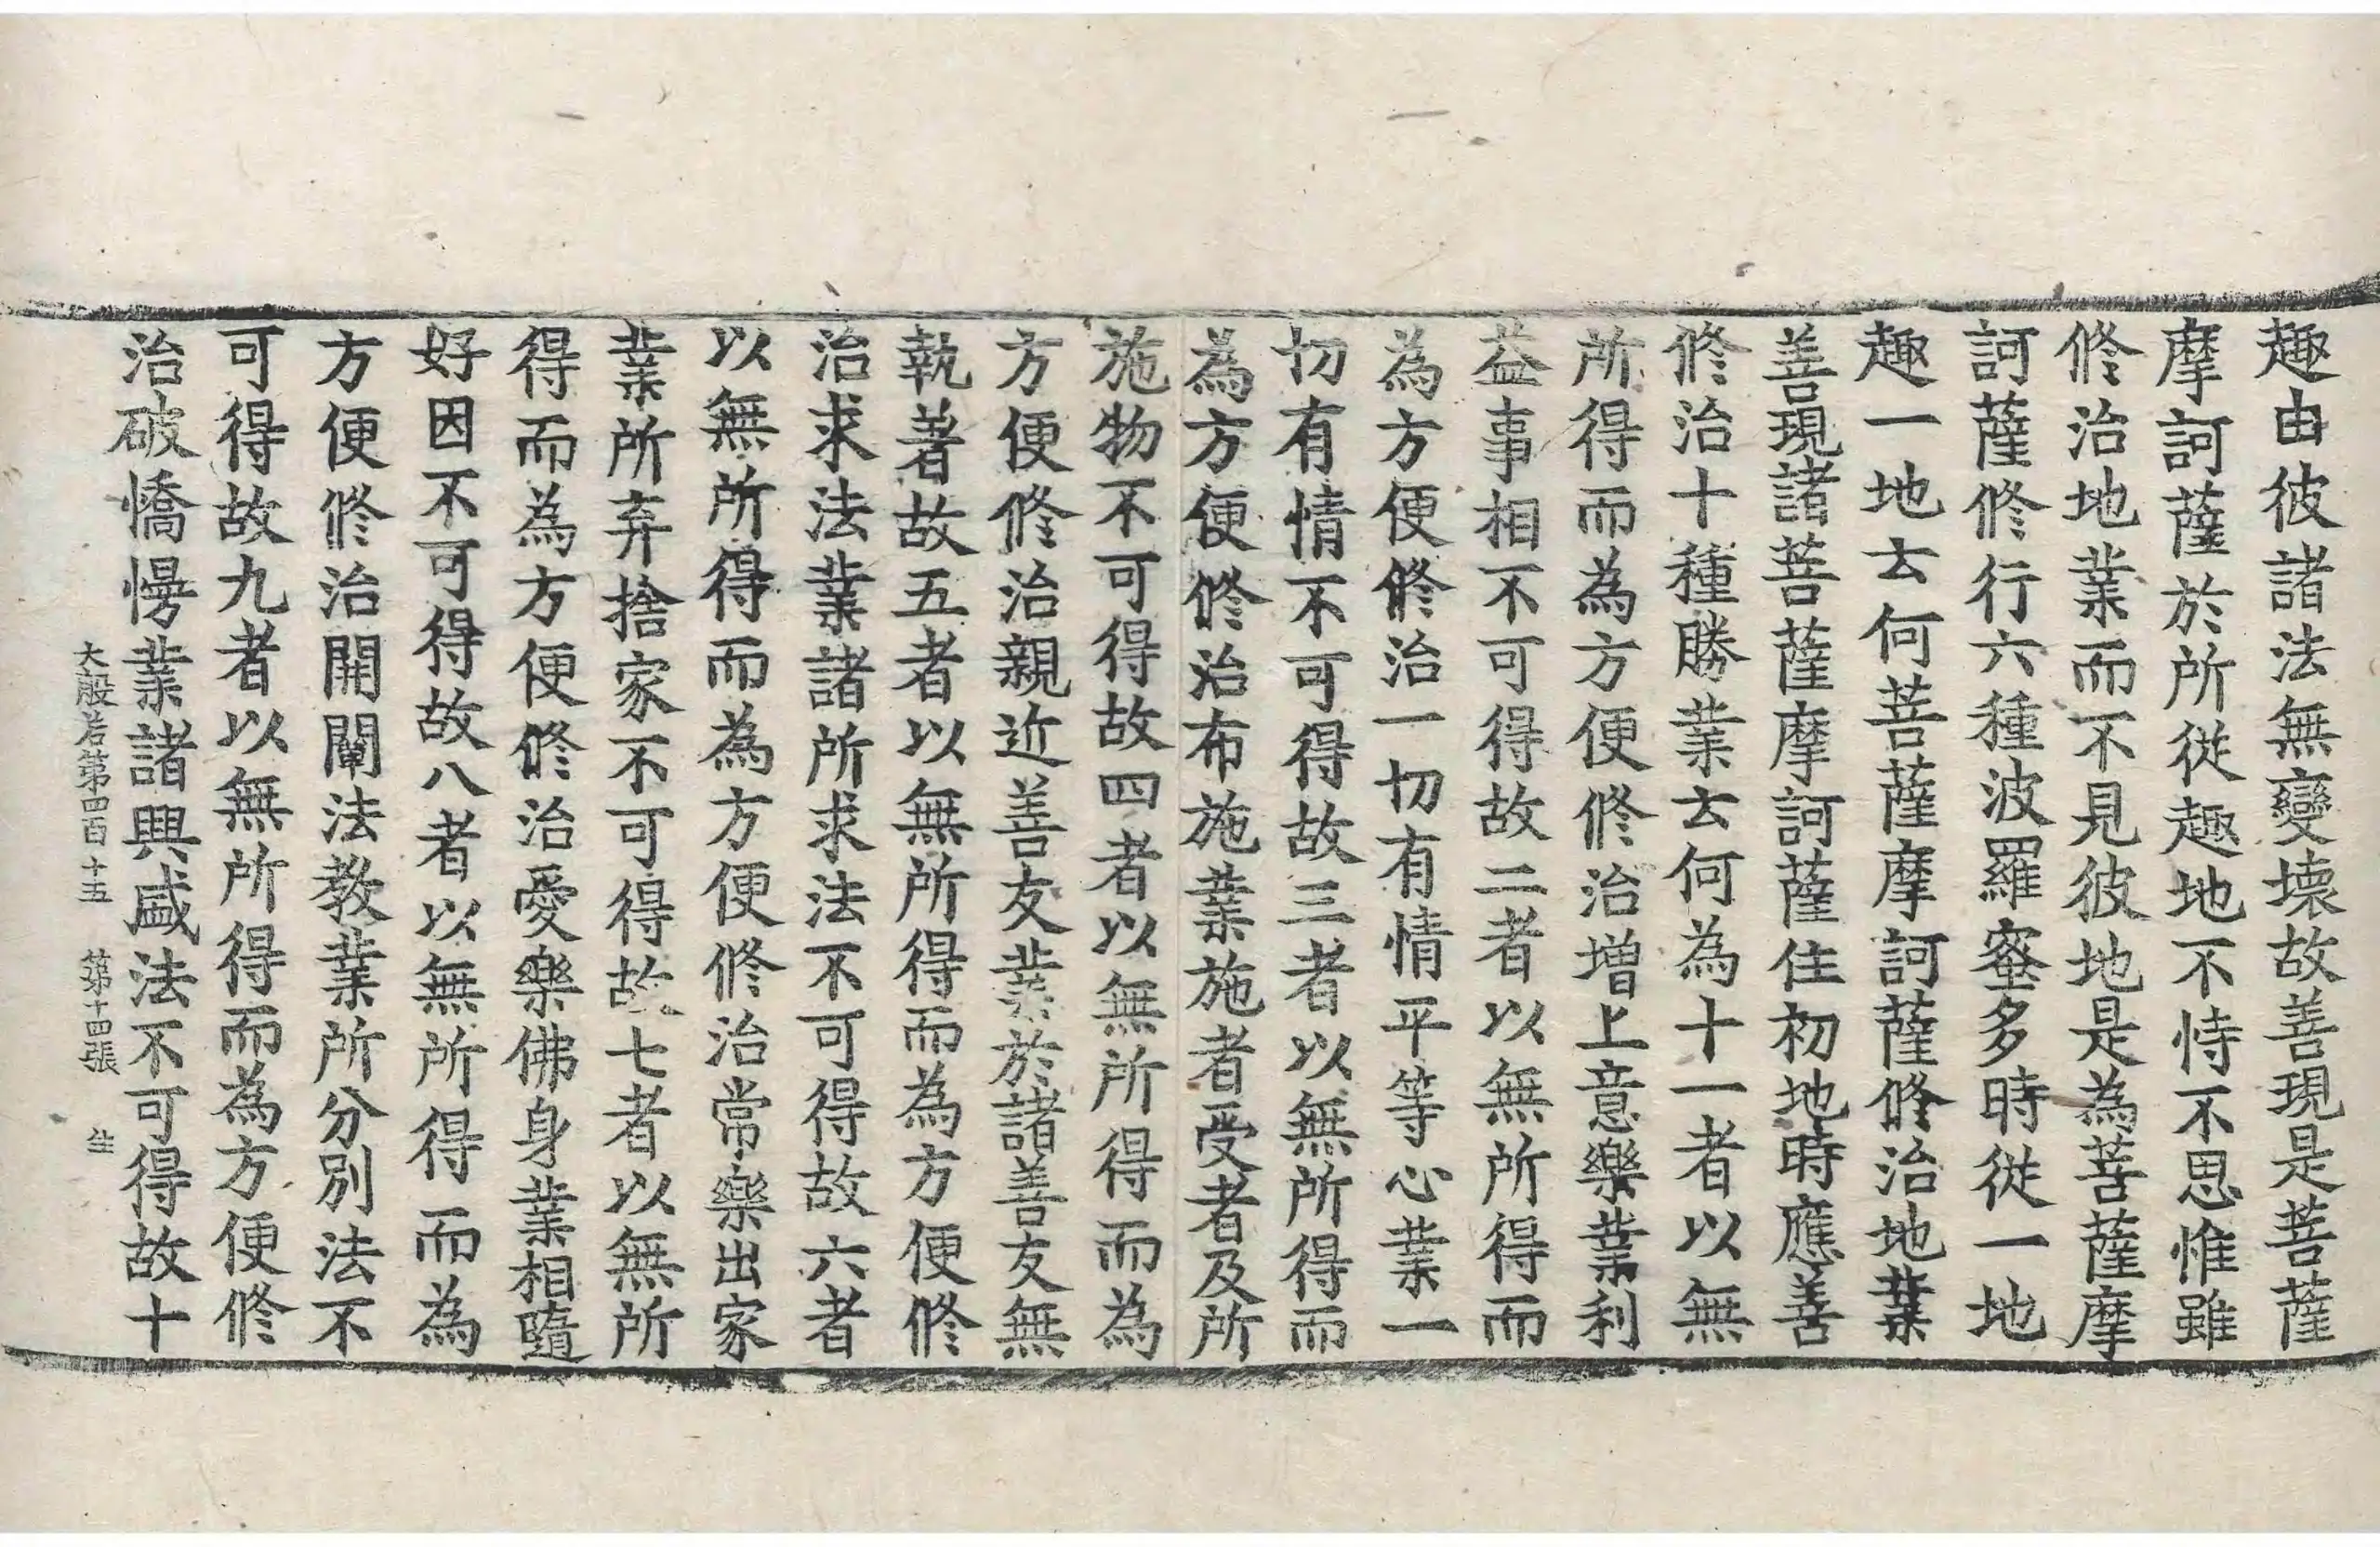 趣由彼諸法無變壞故善現是菩薩
摩訶薩於所從趣地不恃不思惟雖
修治地業而不見彼地是為菩薩摩
訶薩修行六種波羅蜜多時從一地
趣一地云何菩薩摩訶薩修治地業
善現諸菩薩摩訶薩住初地時應善
修治十種勝業云何為十一者以無
所得而為方便修治增上意樂業利
益事相不可得故二者以無所得而
為方便修治一切有情平等心業一
切有情不可得故三者以無所得而
為方便修治布施業施者受者及所
施物不可得故四者以無所得而為
方便修治親近善友業於諸善友無
執著故五者以無所得而為方便修
治求法業諸所求法不可得故六者
以無所得而為方便修治常樂出家
業所弃捨家不可得故七者以無所
得而為方便修治愛樂佛身業相隨
好因不可得故八者以無所得而為
方便修治開闡法教業所分別法不
可得故九者以無所得而為方便修
治破憍慢業諸興盛法不可得故十
大般若第四百十五 第十四張